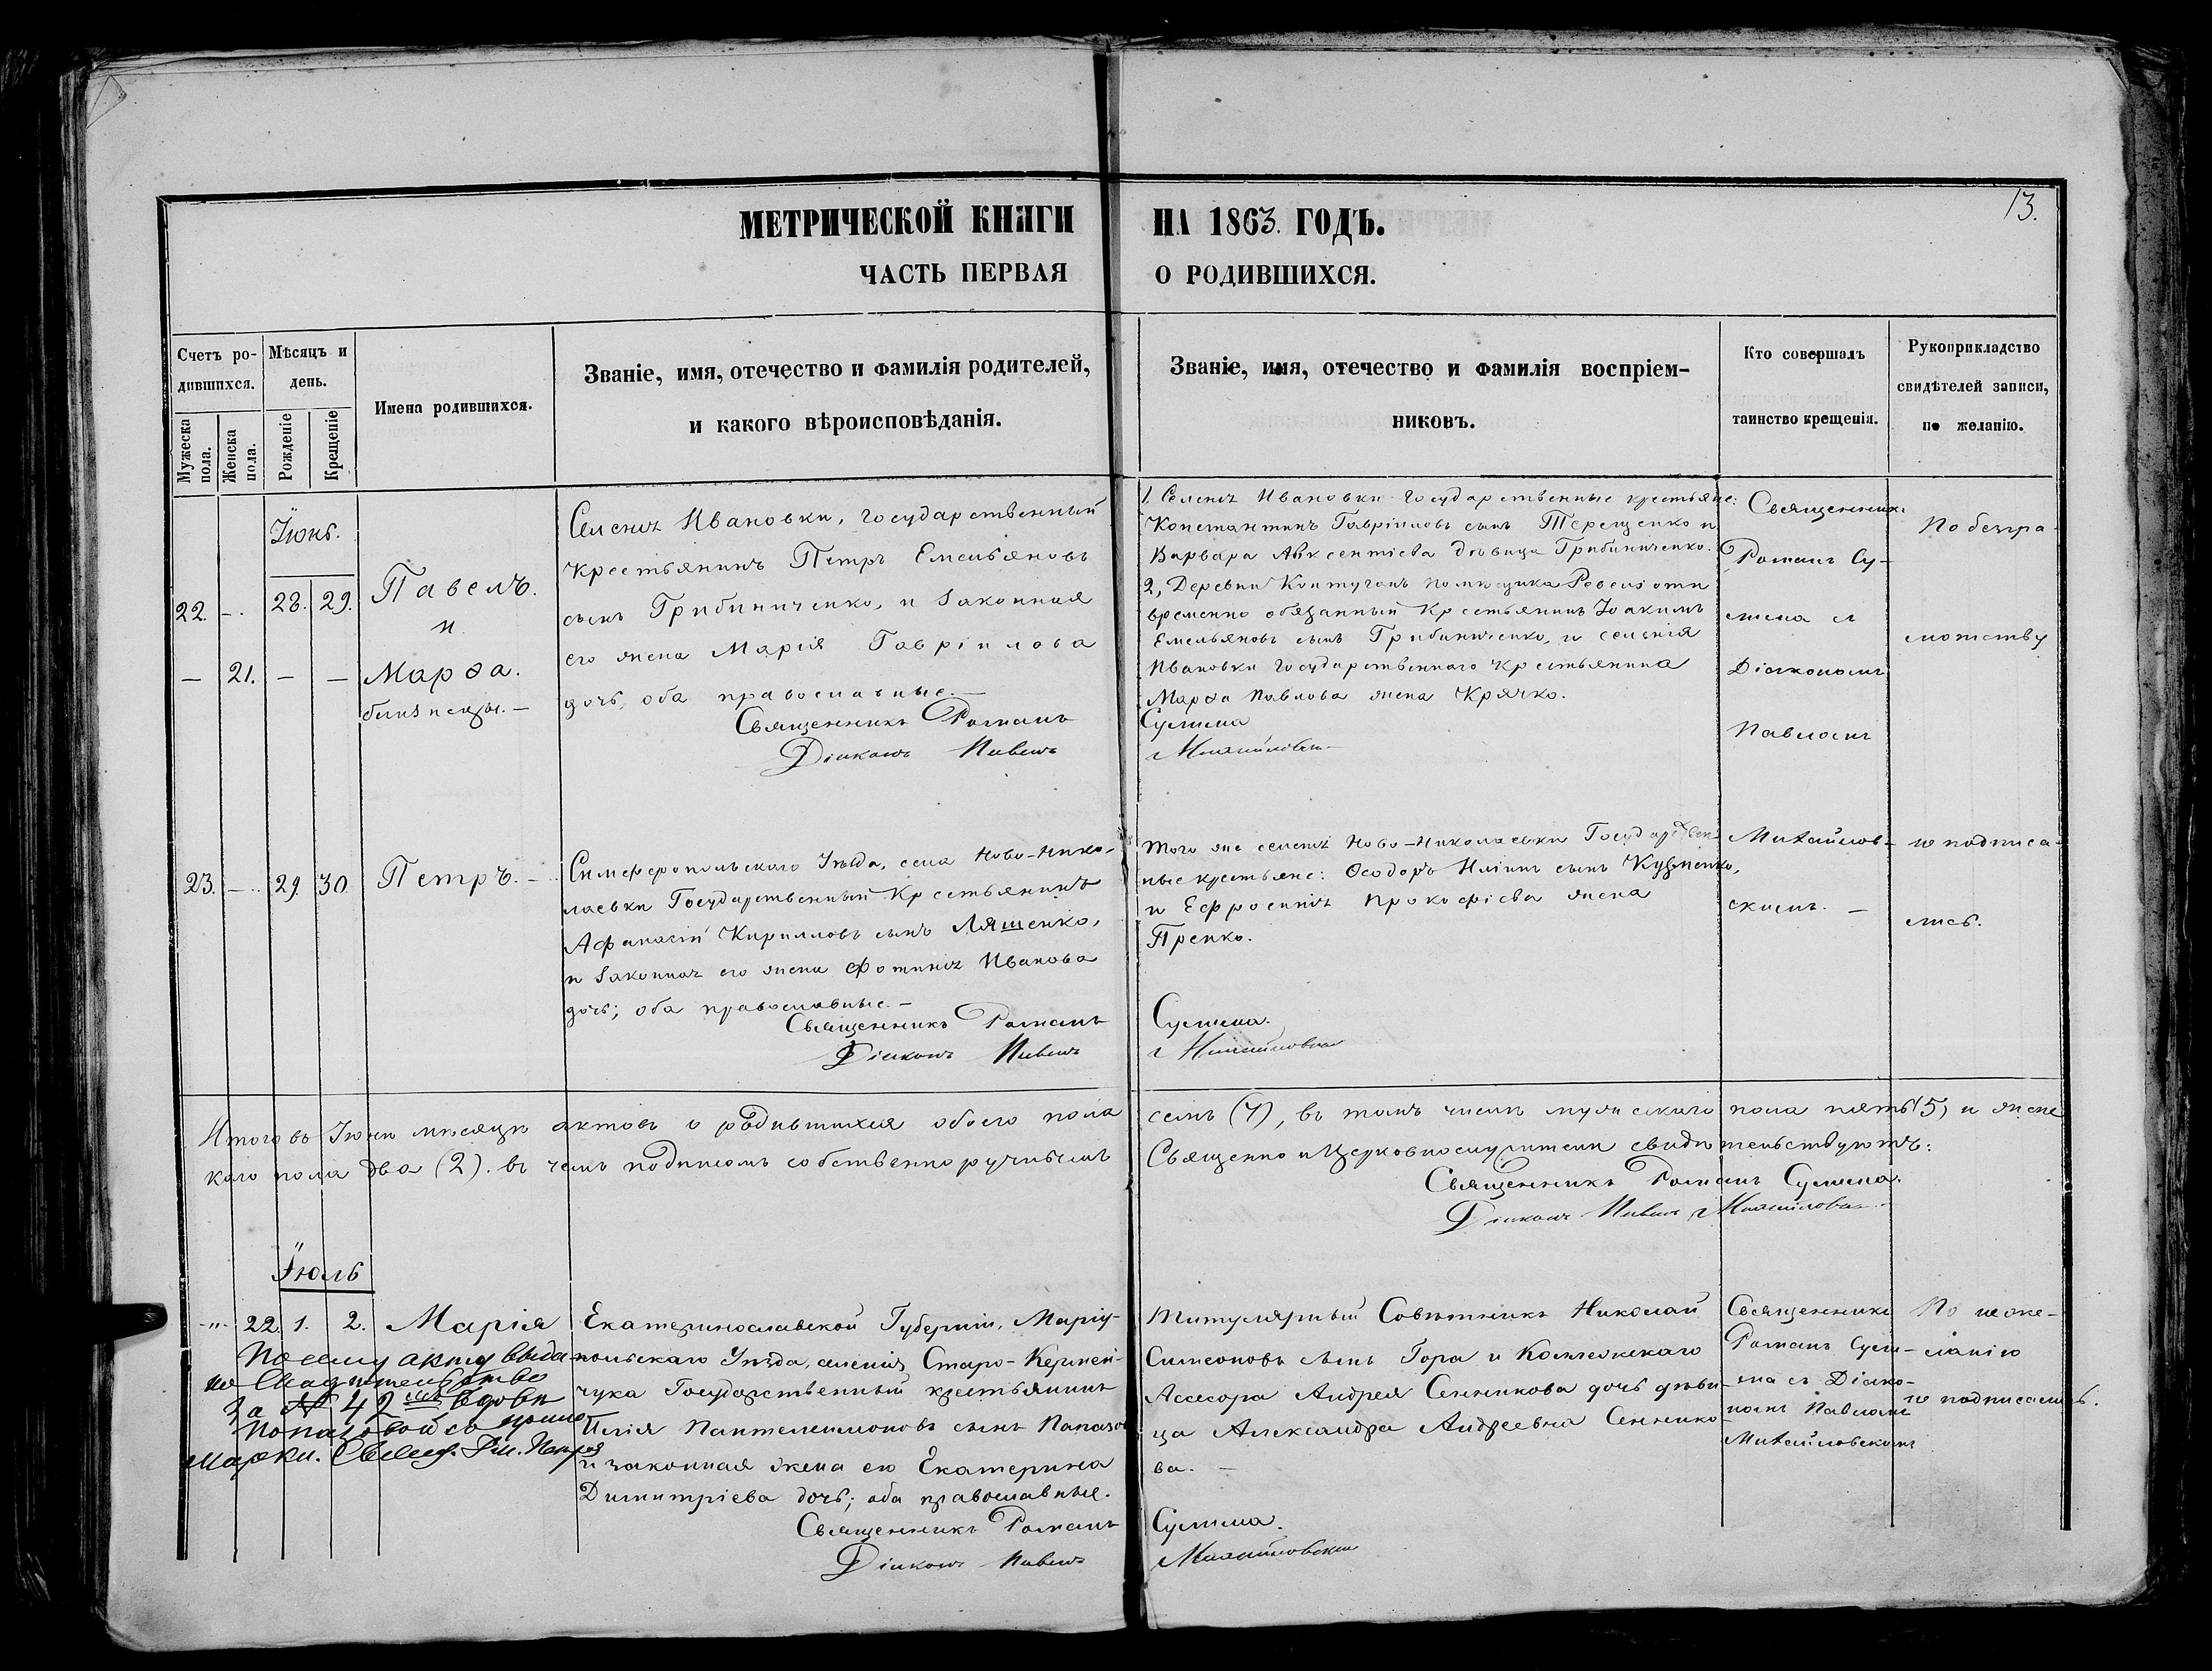 13.
МЕТРИЧЕСКОЙ КНИГИ НА 1863. ГОДЪ.
ЧАСТЬ ПЕРВАЯ О РОДИВШИХСЯ.
Счетъ ро-
дившихся.
Мужеска пола.
Женска пола.
Мѣсяцъ и
день.
Рожденіе
Крещеніе
Имена родившихся.
Званіе, имя, отечество и фамилія родителей,
и какого вѣроисповѣданія.
Званіе, имя, отечество и фамилія воспріем-
никовъ.
Кто совершалъ
таинство крещенія.
Рукоприкладство
свидѣтелей записи,
по желанію.
Іюнь.
22. - 28. 29.
Павелъ.
и
- 21. - -
Марѳа.
близнецы. -
Селенія Ивановки, государственный
крестьянинъ Петръ Емельяновъ
сынъ Грибиниченко, и законная
его жена Марія Гавріилова
дочь, оба православные. -
Священникъ Романъ
Діаконъ Павелъ
1. Селенія Ивановки государственные крестьяне:
Константинъ Гавріиловъ сынъ Терещенко и
Варвара Авксентіева дѣвица Грибиниченко.
2, Деревни Контуганъ помѣщика Ревеліоти
временно обязанный крестьянинъ Іоакимъ
Емельяновъ сынъ Грибиниченко, и селенія
Ивановки государственнаго крестьянина
Марѳа Павлова жена Крячко.
Сулима
Михайловскій
Священникъ
Романъ Су-
лима съ
Діакономъ
Павломъ
Михайлов-
скимъ. -
По безгра-
мотству
не подписа-
лись.
23. - 29. 30.
Петръ. -
Симферопольскаго Уѣзда, села Ново-Нико-
лаевки Государственный Крестьянинъ
Афанасій Кирилловъ сынъ Ляшенко,
и законная его жена Фотинія Иванова
дочь; оба православные. -
Священникъ Романъ
Діаконъ Павелъ
Того же селенія Ново-Николаевки Государствен-
ные крестьяне: Ѳеодоръ Иліинъ сынъ Кузменко,
и Ефросинія Прокофіева жена
Пренко.
Сулима.
Михайловскій
Итого въ Іюнѣ мѣсяцѣ актовъ о родившихся обоего пола семь (7), въ томъ числѣ мужескаго пола пять (5) и женс
каго пола два (2). въ чемъ подписомъ собственноручнымъ Священно и Церковнослужители свидѣтельствуютъ:
Священникъ Романъ Сулима.
Діаконъ Павелъ Михайловскій
Іюль
-"- 22. 1. 2. Марія
По сему акту выда-
но Свидѣтельство
за № 42 вдовѣ
Попазовой со
марки. Свящ.
Екатеринославской Губерніи, Маріу-
польскаго Уѣзда, селенія Старо-Кермен-
чука Государственный крестьянинъ
Илія Пантелеимоновъ сынъ Папазо
и законная жена его Екатерина
Димитріева дочь; оба православные.
Священникъ Романъ
Діаконъ Павелъ
Титулярный Совѣтникъ Николай
Симеоновъ сынъ Гора и Коллежскаго
Ассесора Андрея Сенникова дочь дѣви-
ца Александра Андреевна Сеннико-
ва. -
Сулима.
Михайловскій
Священникъ
Романъ Сули-
ма съ Діако-
номъ Павломъ
Михайловскимъ
По неже-
ланію
не подписались.